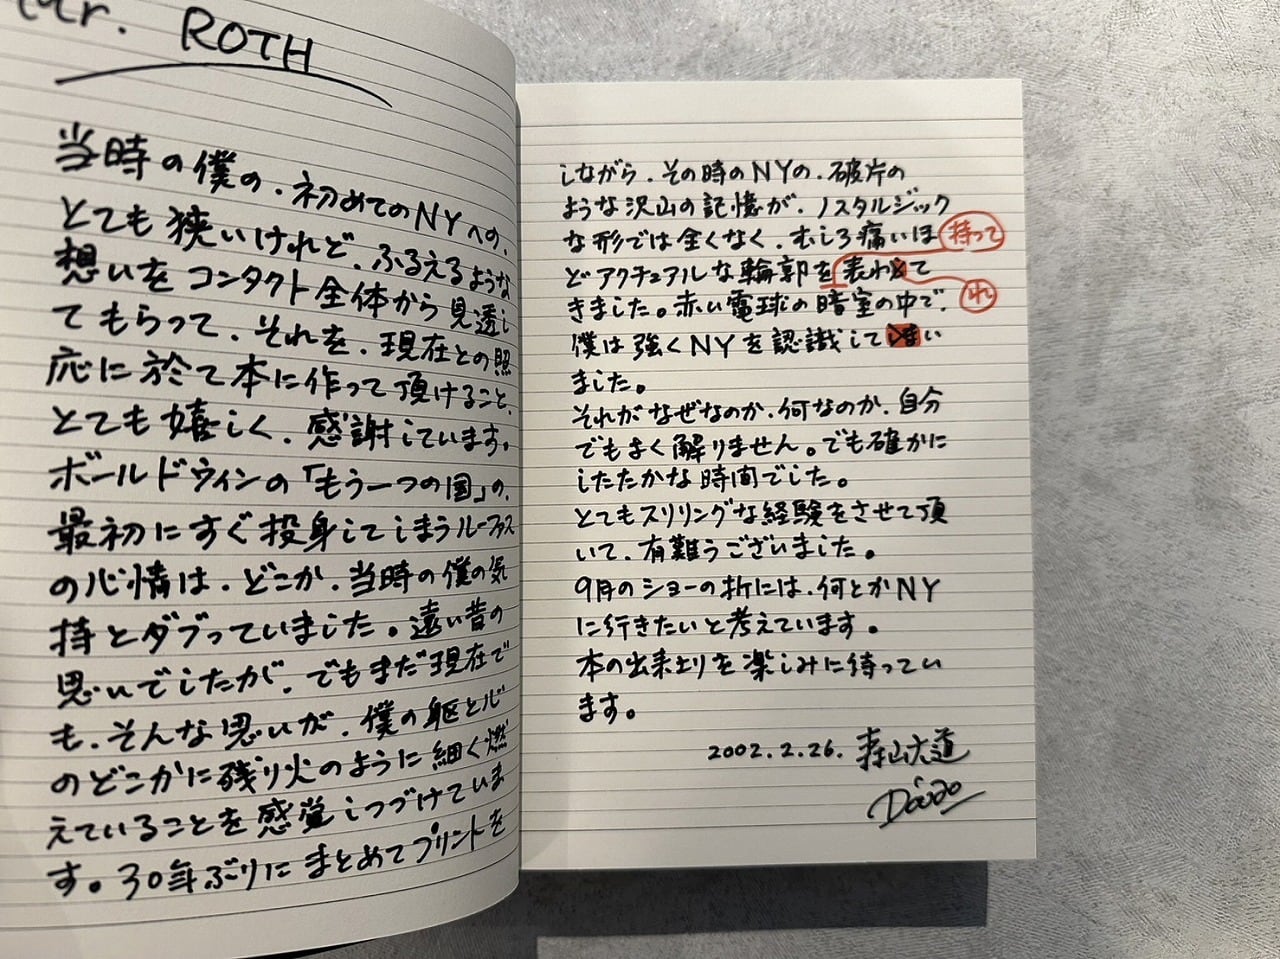 Mr. ROTH
当時の僕の、初めてのNYへの、
とても狭いけれど、ふるえるような
想いをコンタクト全体から見透し
てもらって、それを、現在との照
応に於て本に作って頂けること、
とても嬉しく、感謝しています。
ボールドウィンの「もう一つの国」の、
最初にすぐ投身してしまうルーファス
の心情は、どこか、当時の僕の気
持とダブっていました。遠い昔の
思いでしたが、でもまだ現在で
も、そんな思いが、僕の躯と心
のどこかに残り火のように細く燃
えていることを感覚しつづけていま
す。30年ぶりにまとめてプリントを
しながら、その時のNYの、破片の
ような沢山の記憶が、ノスタルジック
な形では全くなく、むしろ痛いほ 持って
どアクチュアルな輪郭を表わて
れ
きました。赤い電球の暗室の中で、
僕は強くNYを認識してい
ました。
それがなぜなのか、何なのか、自分
でもよく解りません。でも確かに
したたかな時間でした。
とてもスリリングな経験をさせて頂
いて、有難うございました。
9月のショーの折には、何とかNY
に行きたいと考えています。
本の出来上りを楽しみに待ってい
ます。
2002.2.26. 森山大道
Daido